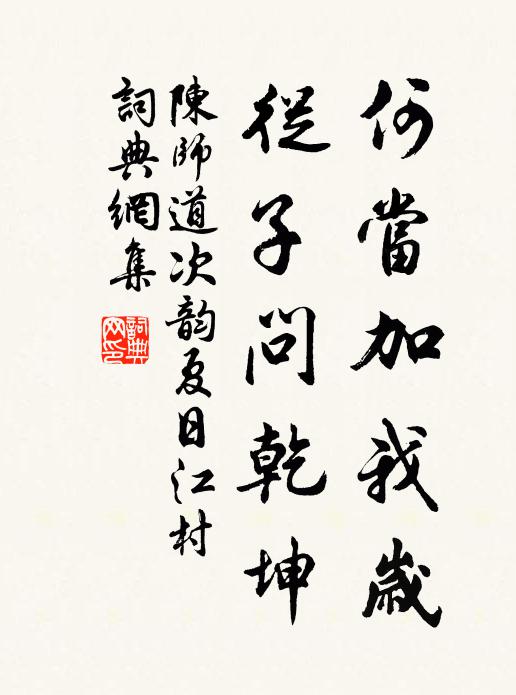 何當加我歲
從子問乾坤
陳師道次韵夏日江村
詞典網集
詞典網印